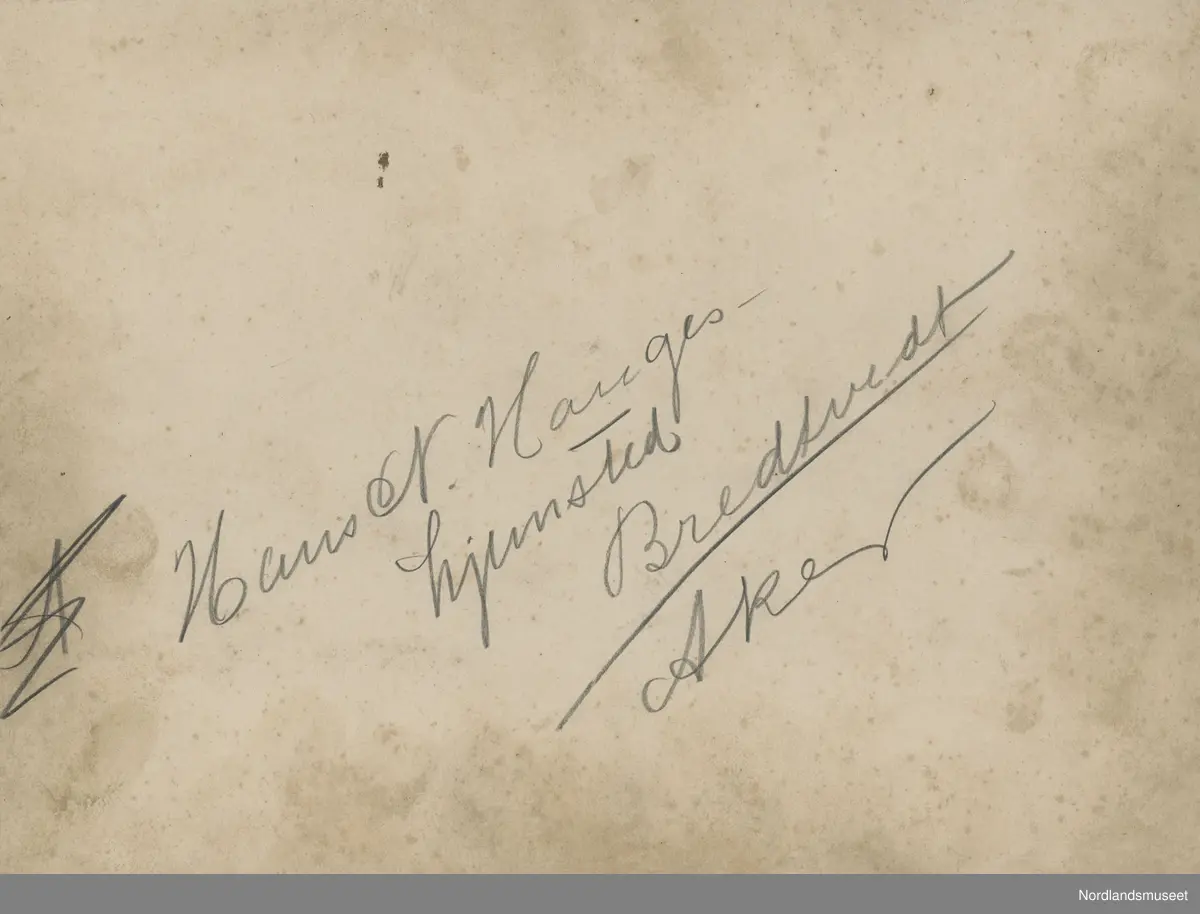 Hans N. Hauges-
hjemsted
Bredtvedt
Aker
Nordlandsmuseet